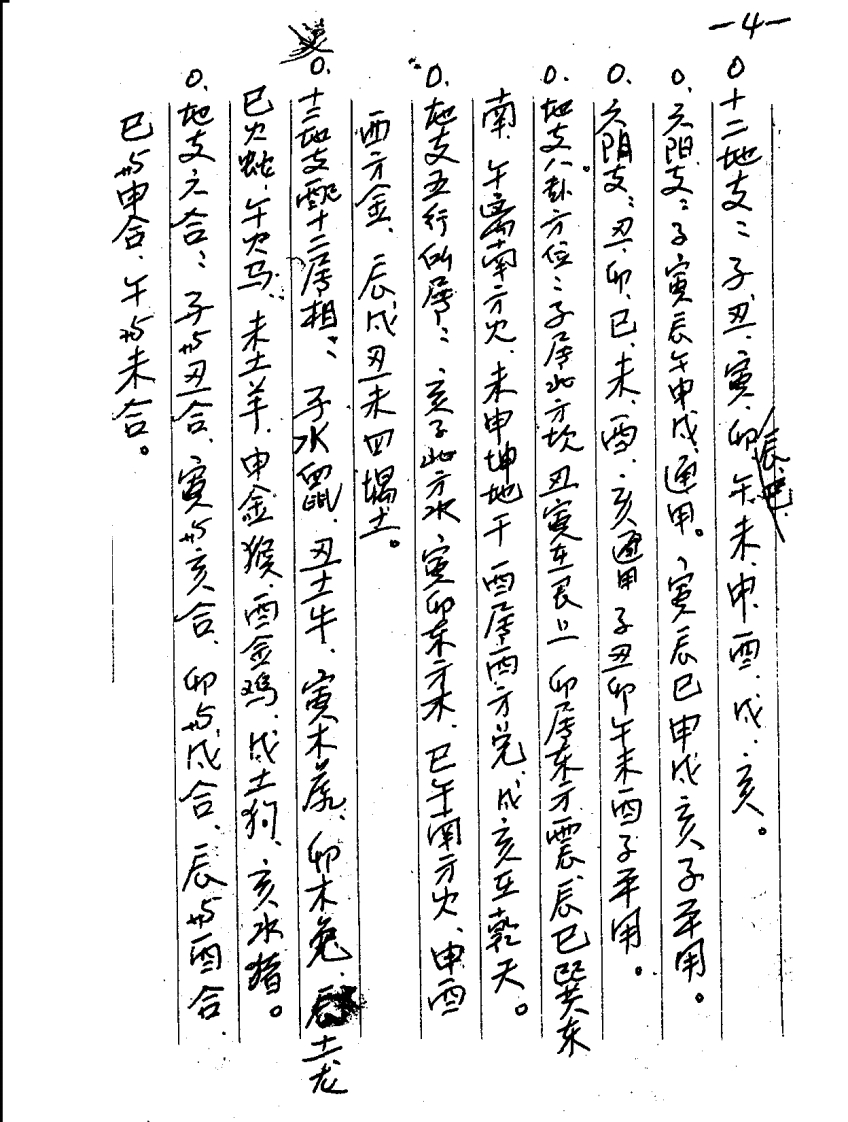 -4-
0十二地支：子丑、寅、卯、辰、巳、午、未、申、酉、戌、亥。
0.六阳支：子寅辰午申戌通用。寅辰巳申戌亥子平用。
0.六阴支：丑、卯、巳、未、酉、亥通用子丑卯午未酉子平用。
0.地支八卦方位：子居北方坎丑寅在艮上卯居东方震辰巳巽东
南、午离南方火、未申坤地干酉居西方兑、戌亥在乾天。
0.地支五行所属：亥子北方水寅卯东方木、巳午南方火、申酉
西方金、辰戌丑未四土。
0.十二地支配十二属相：子水鼠、丑土牛、寅木虎、卯木兔、辰土龙
巳火蛇、午火马、未土羊、申金猴、酉金鸡、戌土狗、亥水猪。
0.地支六合：子与丑合、寅与亥合、卯与戌合、辰与酉合、
巳与申合、午与未合。